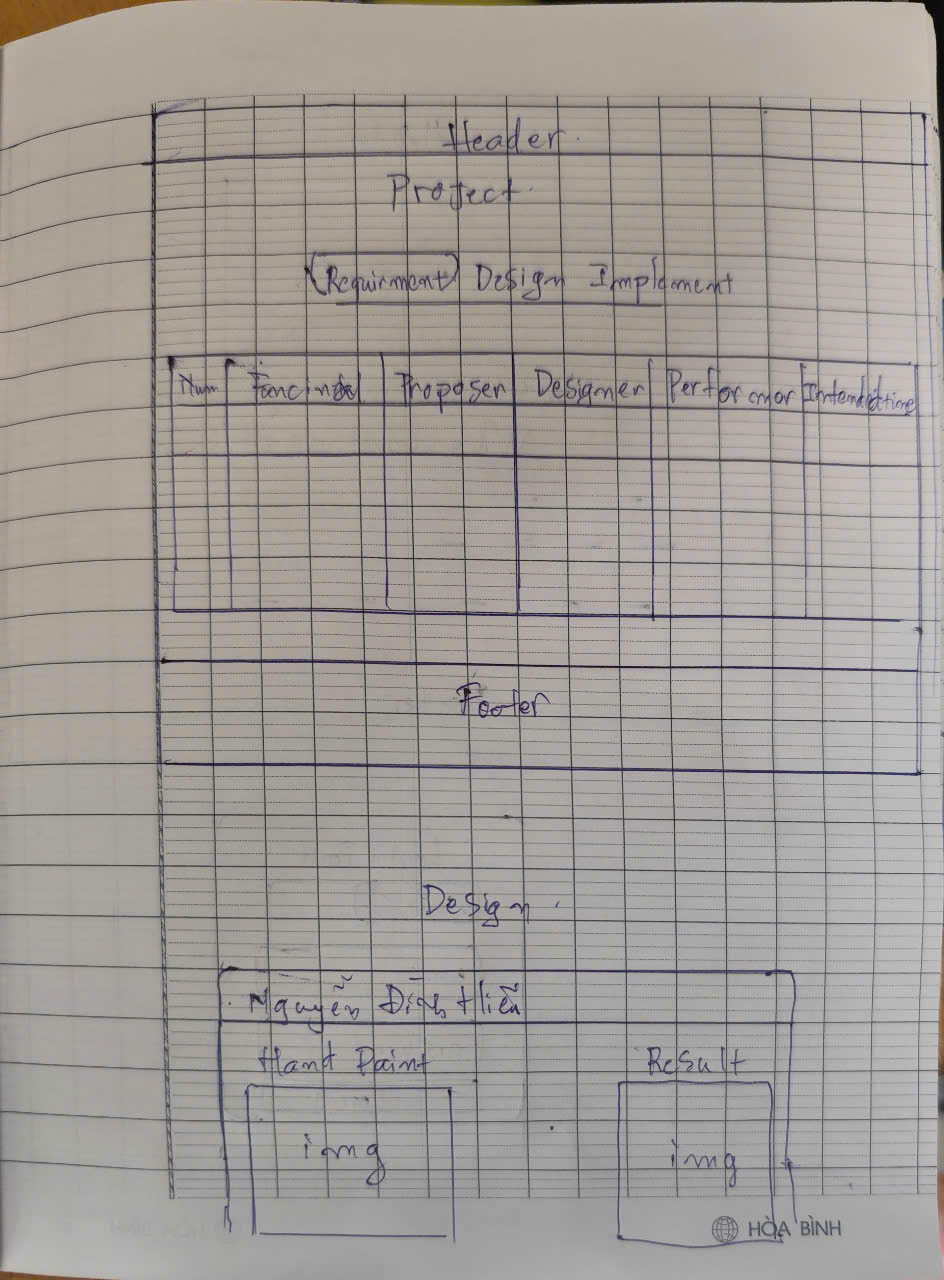 Header.
Project.
Requirment Design Implement
Num Proposer Designer Performar Intended time
Footer
Design.
Nguyễn Đình Hiễn
Hand Paint Result
img img
HÒA BÌNH